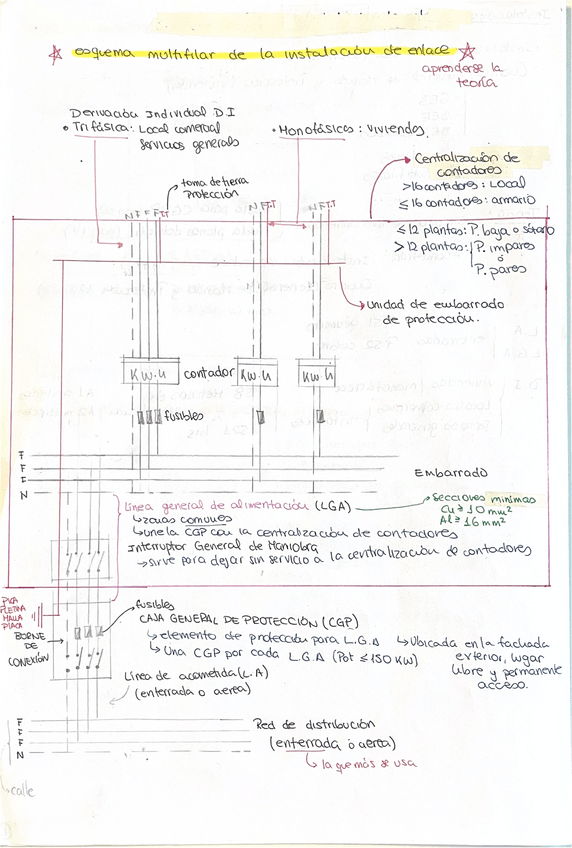 ☆ esquema multifilar de la instalación de enlace ☆
aprenderse la
teoría
Derivación Individual D.I
• Trifásica: Local comercial
servicios generals
• Monofásicos: viviendes.
toma de tierra
Protección
Centralización de
contadores
>16 contadores: Local
≤ 16 contadores: armario
≤ 12 plantas: P. baja o sótano
> 12 plantas: P. impares
ó
P. pares
N F F F T.T
N F T.T
N F T.T
Unidad de embarrado
de protección.
Kw·h
contador
Kw·h
Kw·h
fusibles
F
F
F
N
Embarrado
Línea general de alimentación (LGA)
↳ zonas comunes
↳ une la CGP con la centralización de contadores
Secciones minimas
Cu ≥ 10 mm²
Al ≥ 16 mm²
Interruptor General de Maniobra
→ sirve para dejar sin servicio a la centralización de contadores
PICA
PLETINA
MALLA
PLACA
BORNE
DE
CONEXIÓN
fusibles
CAJA GENERAL DE PROTECCIÓN (CGP)
↳ elemento de protección para L.G.A
↳ Una CGP por cada L.G.A (Pot ≤ 150 KW)
↳ Ubicada en la fachada
exterior, lugar
libre y permanente
acceso.
Línea de acometida (L.A)
(enterrada o aerea)
F
F
F
N
Red de distribución
(enterrada ó aerea)
↳ la que más se usa
calle